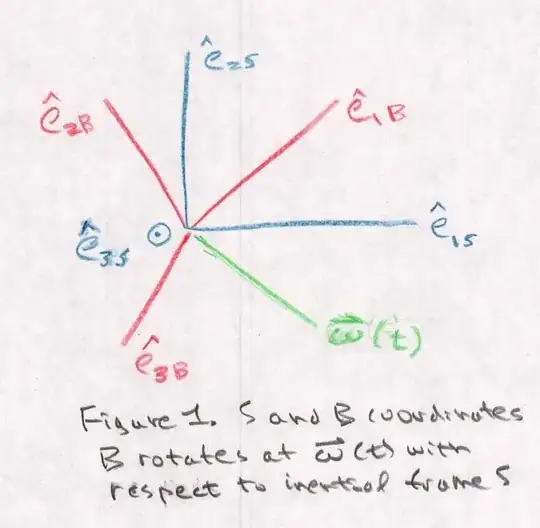 ê₂S
ê₂B
ê₁B
ê₃S
ê₁S
ω⃗(t)
ê₃B
Figure 1. S and B coordinates
B rotates at ω⃗(t) with
respect to inertial frame S